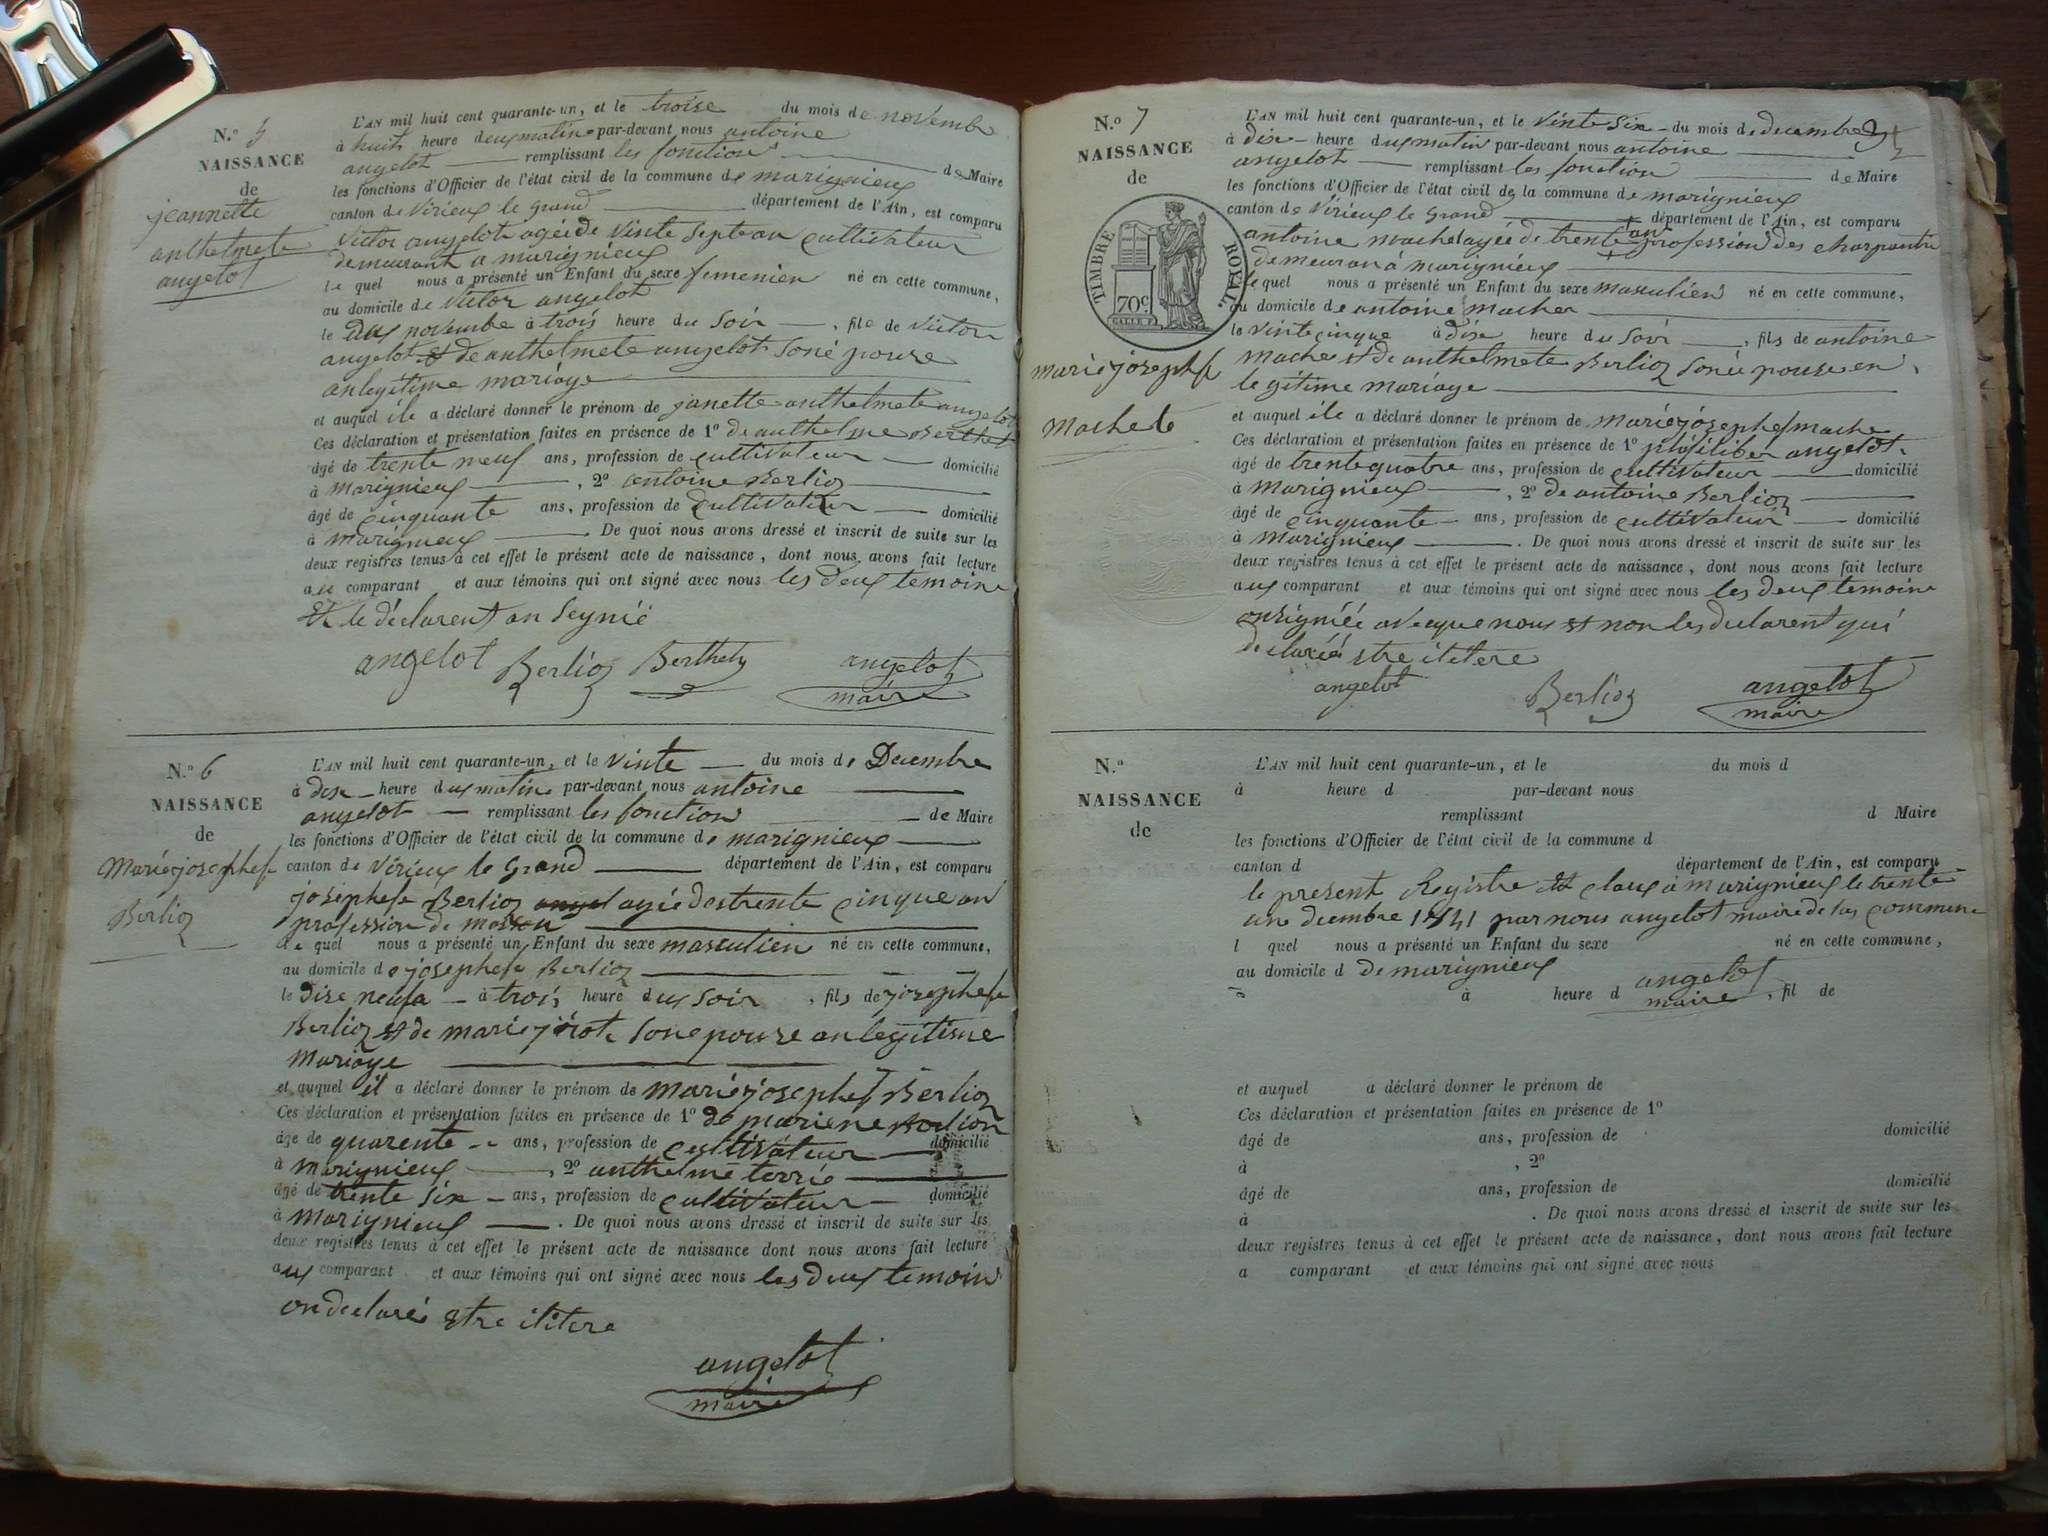 N.º 5
NAISSANCE
de
jeannette
anthelmete
angelot
L'AN mil huit cent quarante-un, et le troise du mois de novembre
à huit heure deus matin par-devant nous antoine
angelot remplissant les fonction de Maire
les fonctions d'Officier de l'état civil de la commune de marignieux
canton de Virieux le Grand département de l'Ain, est comparu
Victor angelot agée de vinte septe an cultivateur
demeurant a marignieux
le quel nous a présenté un Enfant du sexe femenien né en cette commune,
au domicile de Victor angelot
le deux novembe à trois heure du soir , file de Victor
angelot et de anthelmete angelot soné pouse
an legitime mariage
et auquel ile a déclaré donner le prénom de janette anthelmete angelot
Ces déclaration et présentation faites en présence de 1º de anthelme Berthet
âgé de trente neuf ans, profession de cultivateur domicilié
à marignieux , 2º antoine Berlioz
âgé de cinquante ans, profession de cultivateur domicilié
à marignieux . De quoi nous avons dressé et inscrit de suite sur les
deux registres tenus à cet effet le présent acte de naissance, dont nous avons fait lecture
au comparant et aux témoins qui ont signé avec nous les deux temoine
et le déclarent an seynié
angelot Berlioz Berthet angelot
maire
N.º 6
NAISSANCE
de
Marie josephe
Berlioz
L'AN mil huit cent quarante-un, et le vinte du mois de Decembre
à dise heure deus matine par-devant nous antoine
angelot remplissant les fonction de Maire
les fonctions d'Officier de l'état civil de la commune de marignieux
canton de Virieux le Grand département de l'Ain, est comparu
josephe Berlioz agée des trente cinque an
profession de masson
le quel nous a présenté un Enfant du sexe masculien né en cette commune,
au domicile de josephe Berlioz
le dise neufe à trois heure deus soir , fils de josephe
Berlioz et de marie jirot soné pouse an legitisme
mariage
et auquel il a déclaré donner le prénom de marie josephe Berlioz
Ces déclaration et présentation faites en présence de 1º de
âgé de quarente ans, profession de cultivateur domicilié
à marignieux , 2º anthelme terrié
âgé de trente six ans, profession de cultivateur domicilié
à marignieux . De quoi nous avons dressé et inscrit de suite sur les
deux registres tenus à cet effet le présent acte de naissance dont nous avons fait lecture
aus comparant et aux témoins qui ont signé avec nous les deux temoins
on declaré etre ititere
angelot
maire
N.º 7
NAISSANCE
de
TIMBRE ROYAL.
70c.
marie josephe
mache
L'AN mil huit cent quarante-un, et le vinte six du mois de decembre
à dise heure deus matin par-devant nous antoine
angelot remplissant les fonction de Maire
les fonctions d'Officier de l'état civil de la commune de marignieux
canton de Virieux le Grand département de l'Ain, est comparu
antoine mache agée de trente an profession des charpantie
demeuran à marignieux
le quel nous a présenté un Enfant du sexe masculien né en cette commune,
au domicile de antoine mache
le vinte cinque à dise heure du soir , fils de antoine
mache et de anthelmete Berlioz sonée pouse en
legitime mariage
et auquel ile a déclaré donner le prénom de marie josephe mache
Ces déclaration et présentation faites en présence de 1º angelot
âgé de trente quatre ans, profession de cultivateur domicilié
à marignieux , 2º de antoine Berlioz
âgé de cinquante ans, profession de cultivateur domicilié
à marignieux . De quoi nous avons dressé et inscrit de suite sur les
deux registres tenus à cet effet le présent acte de naissance, dont nous avons fait lecture
aus comparant et aux témoins qui ont signé avec nous les deux temoine
onsigniée aveque nous et non les declarent qui
declaré etre ititere
angelot Berlioz angelot
maire
N.º
NAISSANCE
de
L'AN mil huit cent quarante-un, et le du mois d
à heure d par-devant nous
remplissant d Maire
les fonctions d'Officier de l'état civil de la commune d
canton d département de l'Ain, est comparu
le present Registre et claus à marignieux le trente
un decmbre 1841 par nous angelot maire de las commune
l quel nous a présenté un Enfant du sexe né en cette commune,
au domicile d de marignieux
angelot
maire
à heure d , fil de
et auquel a déclaré donner le prénom de
Ces déclaration et présentation faites en présence de 1º
âgé de ans, profession de domicilié
à , 2º
âgé de ans, profession de domicilié
à . De quoi nous avons dressé et inscrit de suite sur les
deux registres tenus à cet effet le présent acte de naissance, dont nous avons fait lecture
a comparant et aux témoins qui ont signé avec nous